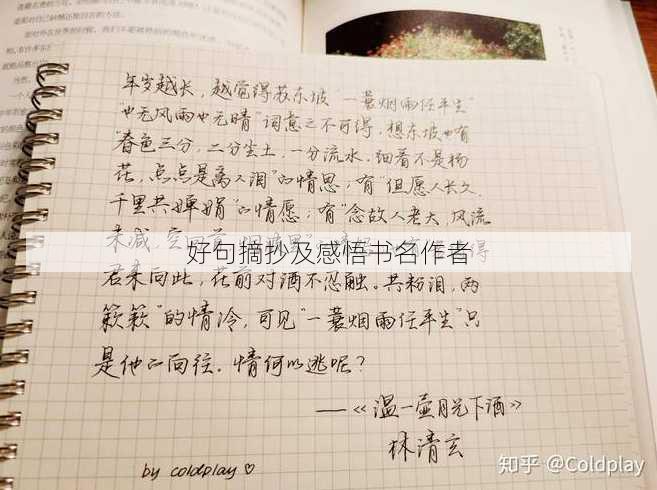 年岁越长，越觉得苏东坡“一蓑烟雨任平生”
“也无风雨也无晴”词意之不可得，想东坡也有
“春色三分，二分尘土，一分流水，细看不是杨
花，点点是离人泪”的情思；有“但愿人长久，
千里共婵娟”的情愿；有“念故人老大，风流
未减，空回首，烟
得
好句摘抄及感悟书名作者
君来向此，花前对酒不忍触。共粉泪，两
簌簌”的情冷，可见“一蓑烟雨任平生”只
是他的向往，情何以逃呢？
——《温一壶月光下酒》
林清玄
by coldplay♡
知乎 @Coldplay